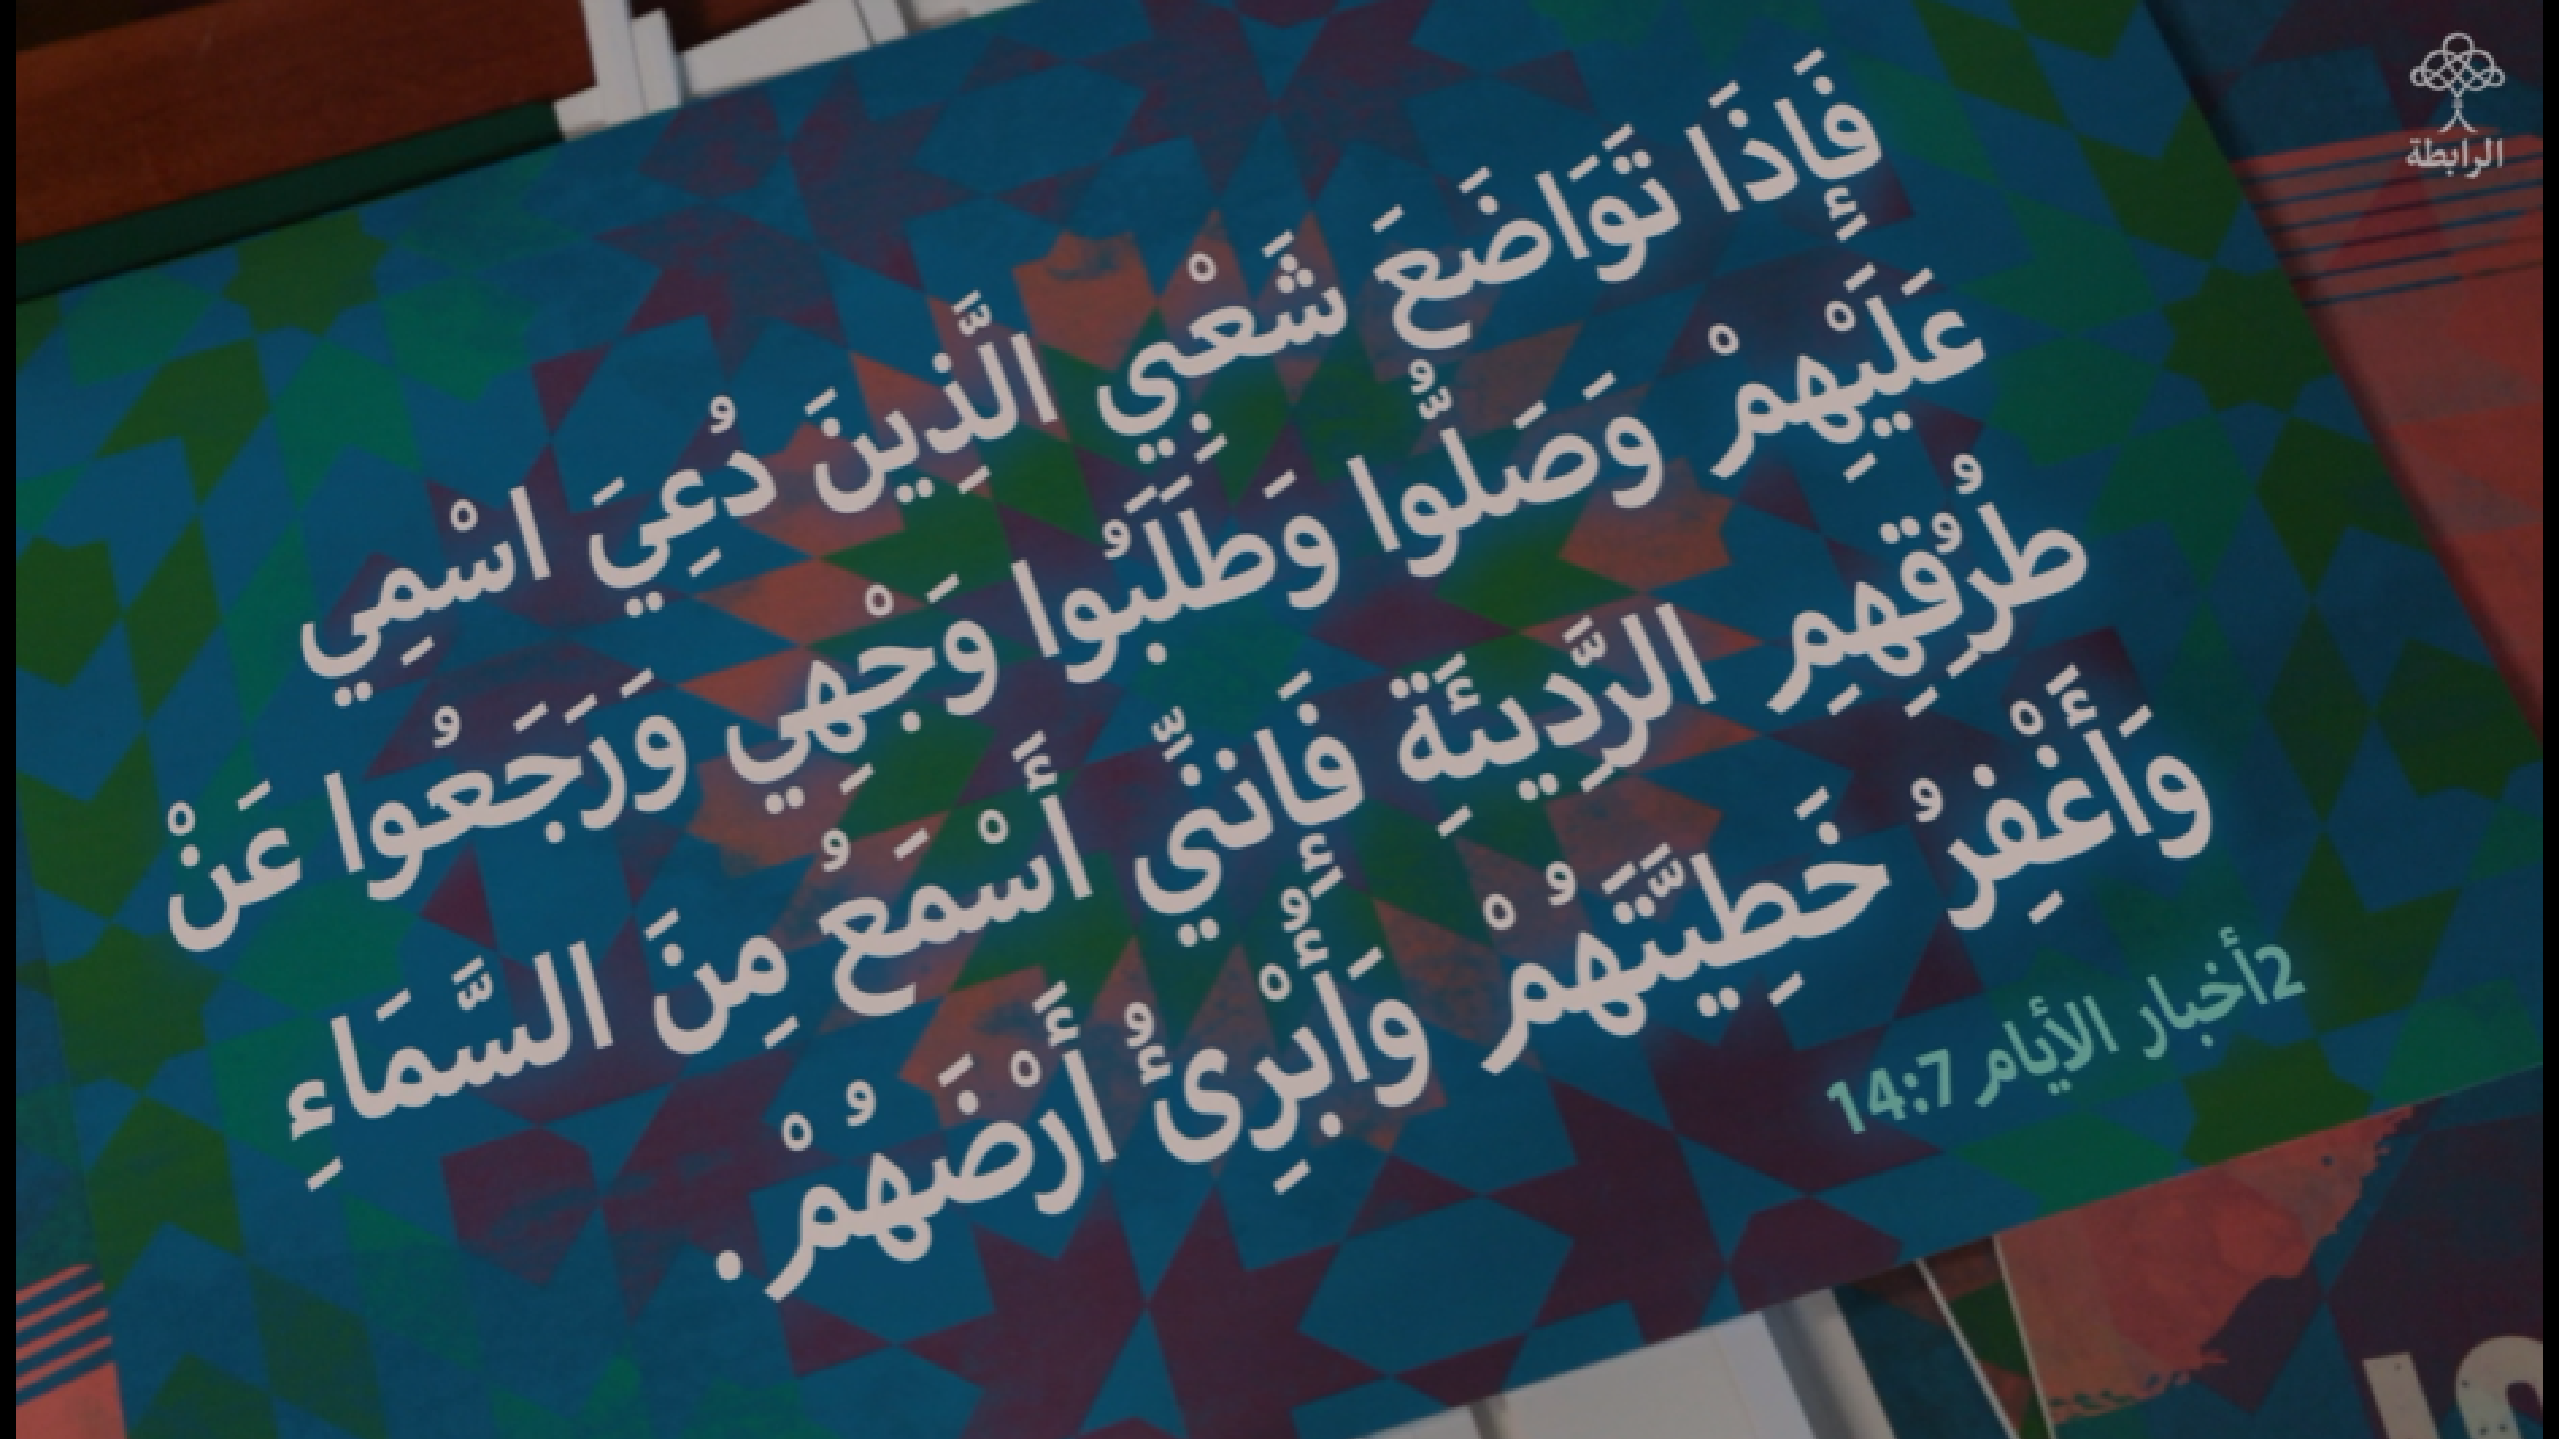 فَإِذَا تَوَاضَعَ شَعْبِي الَّذِينَ دُعِيَ اسْمِي
عَلَيْهِمْ وَصَلُّوا وَطَلَبُوا وَجْهِي وَرَجَعُوا عَنْ
طُرُقِهِمِ الرَّدِيئَةِ فَإِنَّنِي أَسْمَعُ مِنَ السَّمَاءِ
وَأَغْفِرُ خَطِيَّتَهُمْ وَأُبْرِئُ أَرْضَهُمْ.
2أخبار الأيام 14:7
الرابطة